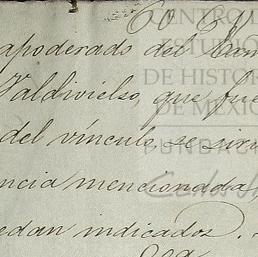 apoderado del
Valdivielso, que fue
del vínculo, se sirv
ncia mencionada
edan indicados.
CENTRO DE
ESTUDIOS
DE HISTORIA
DE MÉXICO
FUNDACIÓN